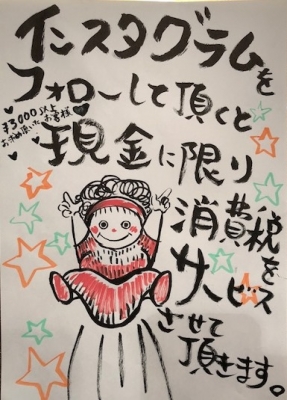 インスタグラムを
フォローして頂くと
¥3000以上
お求め頂いたお客様
現金に限り
消費税を
サービス
させて
頂きます。